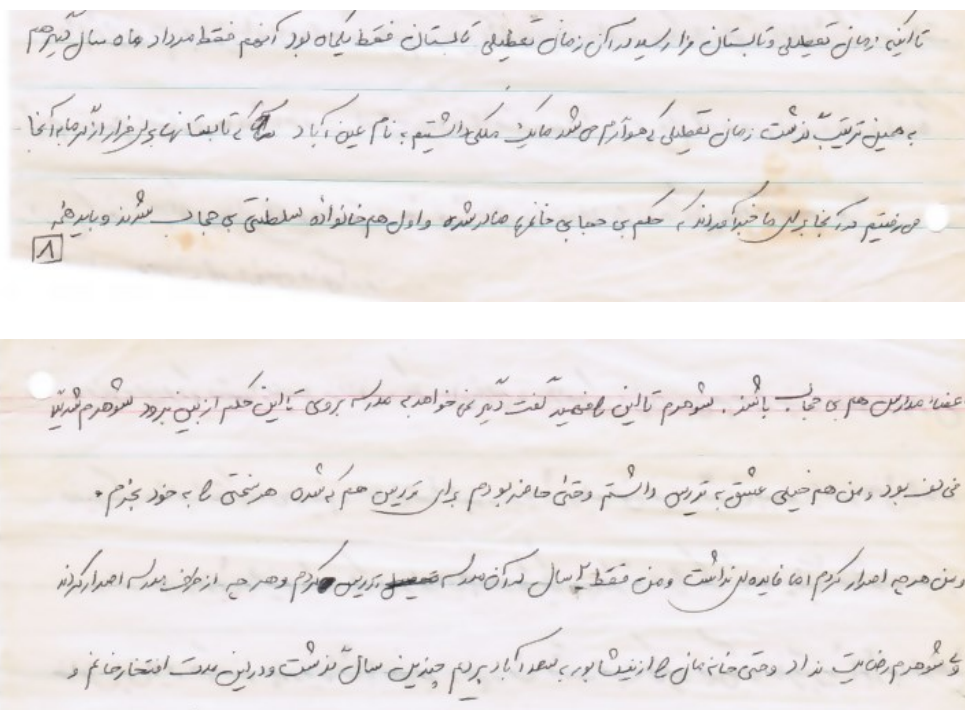 تا اینکه زمان تعطیلی و تابستان فرا رسید در آن زمان تعطیلی تابستان فقط یکماه بود آنهم فقط مرداد ماه سال دیگر هم
به همین ترتیب گذشت زمان تعطیلی که هوا گرم می شد ما یک ملکی داشتیم به نام عین آباد که تابستانها برای فرار از گرما به آنجا
می رفتیم در آنجا برای ما خبر آوردند که حکم بی حجابی خانمها صادر شده و اول هم خانواده سلطنتی بی حجاب شدند و باید همه
۸
اعضاء مدارس هم بی حجاب باشند. شوهرم تا این را فهمید گفت دیگر نمی خواهد به مدرسه بروی تا این حکم از بین برود شوهرم شدیداً
مخالف بود و من هم خیلی عشق به تدریس داشتم و حتی حاضر بودم برای تدریس هم که شده هر سختی را به خود بخرم.
و من هر چه اصرار کردم اما فایده ای نداشت و من فقط ۲ سال در آن مدرسه تدریس کردم و هر چه از طرف مدرسه اصرار کردند
ولی شوهرم رضایت نداد و حتی خانه مان را از نیشابور به سعد آباد بردیم چندین سال گذشت و در این مدت افتخار خانم و